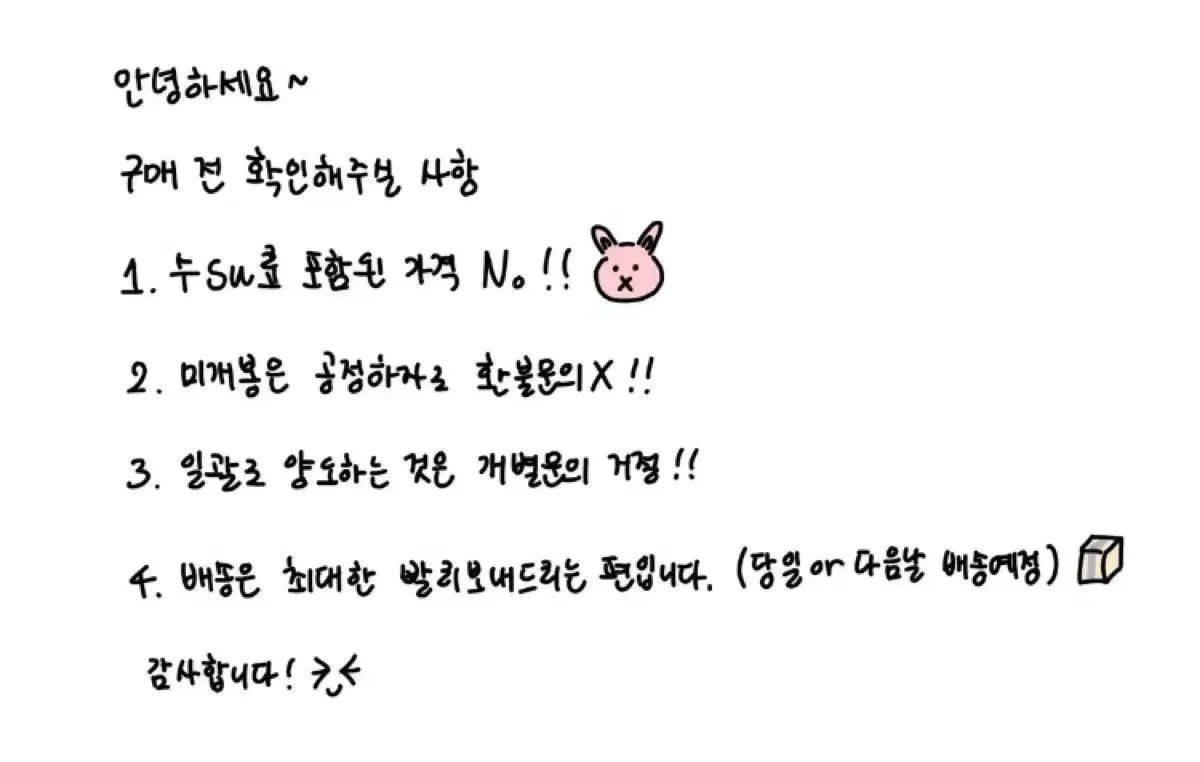 안녕하세요~
구매 전 확인해주실 사항
1. 수su료 포함된 가격 No!!
2. 미개봉은 공정하자로 환불문의X!!
3. 일괄로 양도하는 것은 개별문의 거절!!
4. 배송은 최대한 빨리보내드리는 편입니다. (당일or다음날 배송예정)
감사합니다!